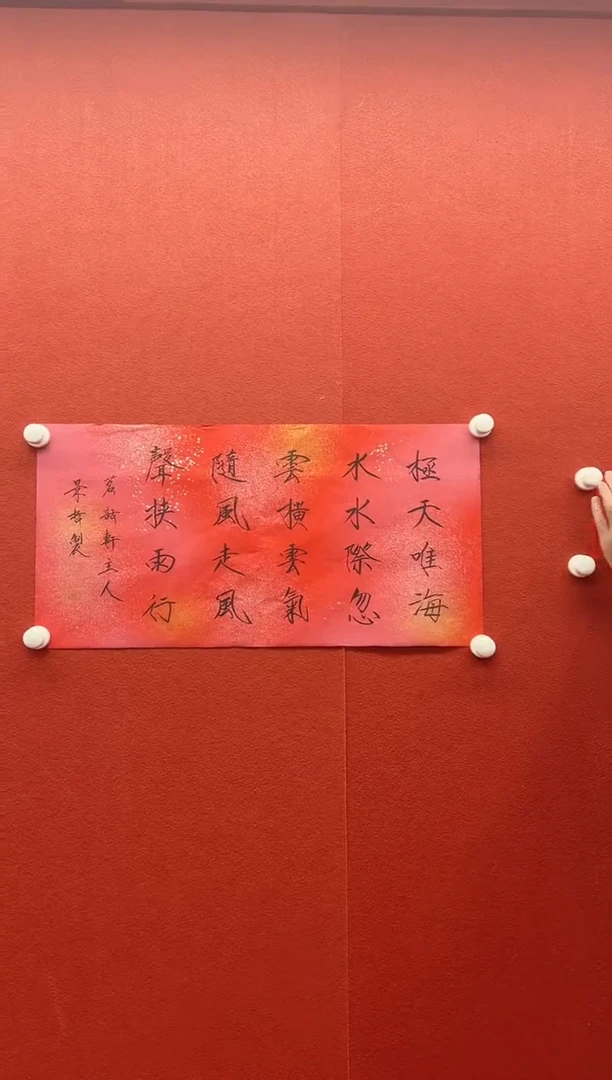 極天唯海
水水際忽
雲橫雲氣
隨風走風
聲挾雨行
軒主人
製